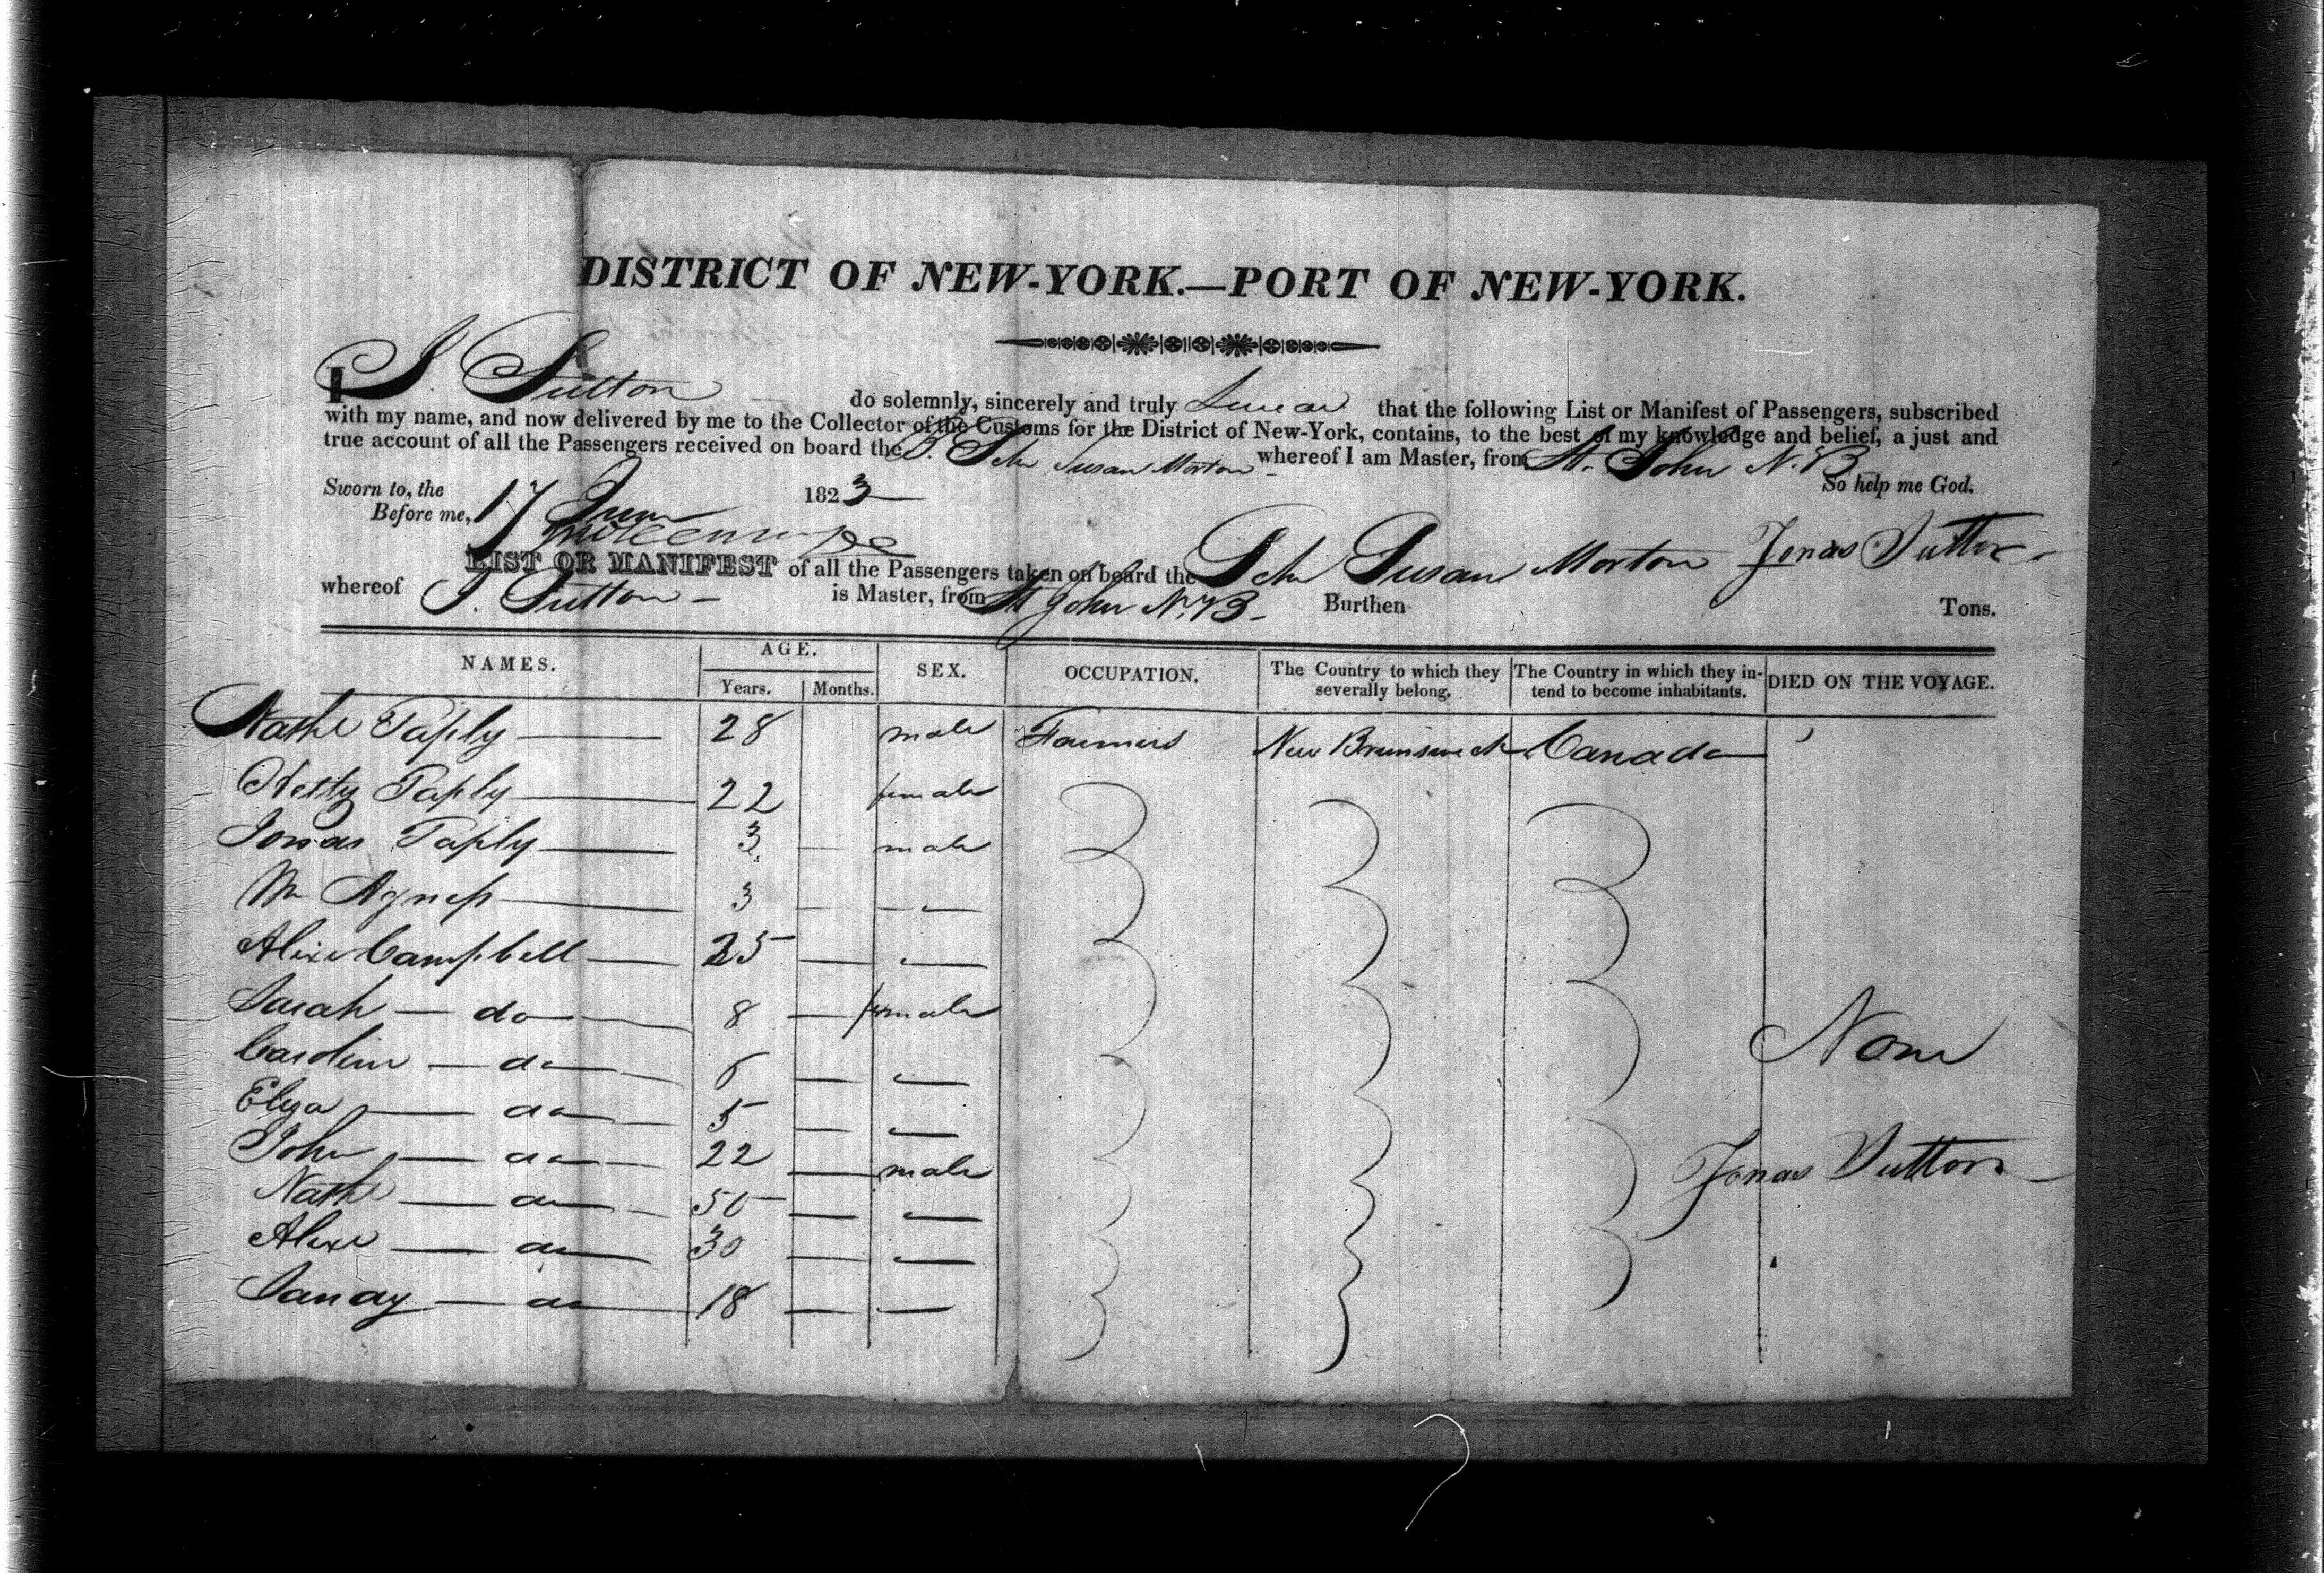 DISTRICT OF NEW-YORK.—PORT OF NEW-YORK.
I J. Sutton do solemnly, sincerely and truly Swear that the following List or Manifest of Passengers, subscribed
with my name, and now delivered by me to the Collector of the Customs for the District of New-York, contains, to the best of my knowledge and belief, a just and
true account of all the Passengers received on board the B. Schr Susan Morton whereof I am Master, from St. John N.B
So help me God.
Sworn to, the 17 June 1823
Before me,
Jonas Sutton
LIST OR MANIFEST of all the Passengers taken on board the Schr Susan Morton
whereof J. Sutton is Master, from St John N.B. Burthen Tons.
NAMES. AGE. Years. Months. SEX. OCCUPATION. The Country to which they severally belong. The Country in which they intend to become inhabitants. DIED ON THE VOYAGE.
Nathl Taply 28 male Farmers New Brunswick Canada
Hetty Taply 22 female
Jonas Taply 3 — male
Wm Agness 3 — —
Alexr Campbell 25 — —
Sarah — do 8 — female
Caroline — do 6 — —
Eliza — do 5 — —
John — do 22 — male
Nathl — do 50 — —
Alexr — do 30 — —
Sanday — do 18 — —
None
Jonas Sutton